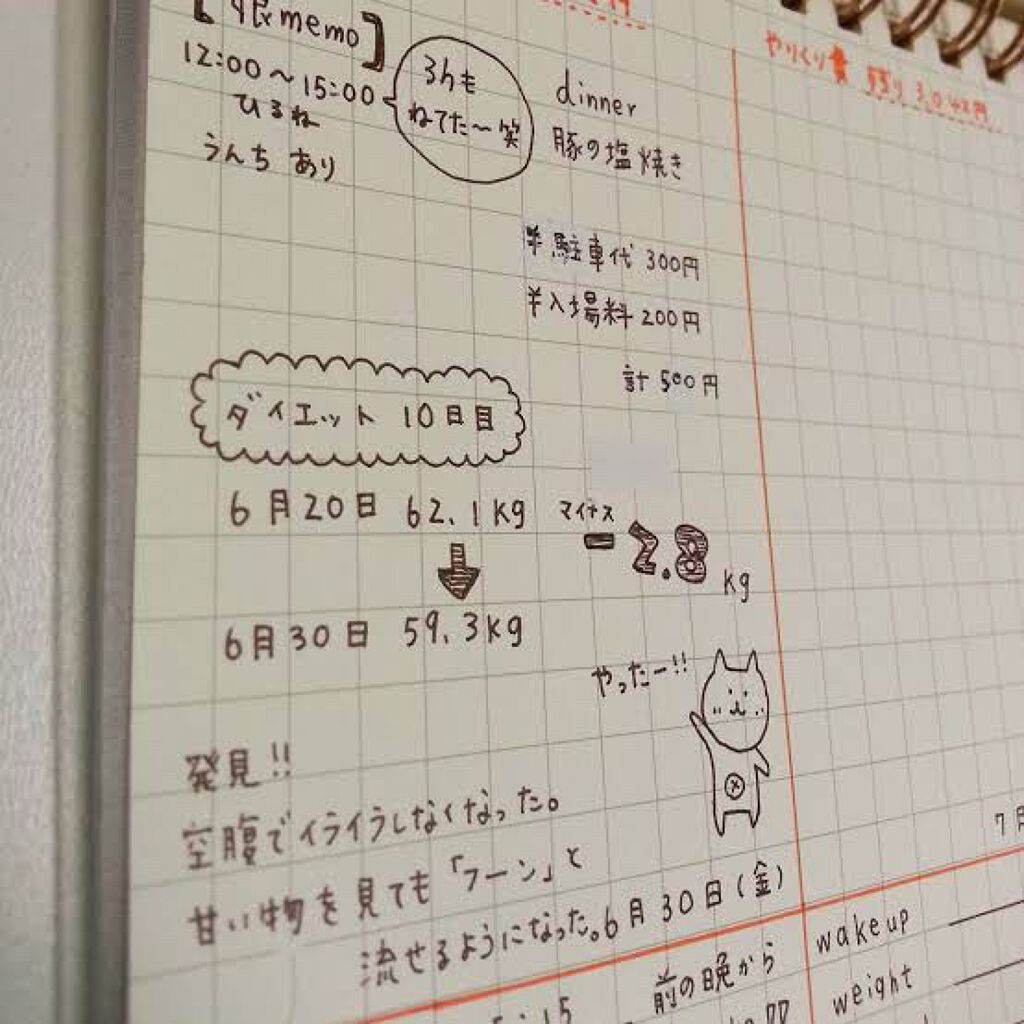 memo】
12:00〜15:00
ひるね
3hも
ねてた〜笑
うんち あり
dinner
豚の塩焼き
¥駐車代 300円
¥入場料 200円
計 500円
ダイエット 10日目
6月20日 62.1kg
6月30日 59.3kg
マイナス
- 2.8 kg
やったー!!
発見!!
空腹でイライラしなくなった。
甘い物を見ても「フーン」と
流せるようになった。
6月30日(金)
やりくり費 残り 3,042円
7月
前の晩から
wake up
weight